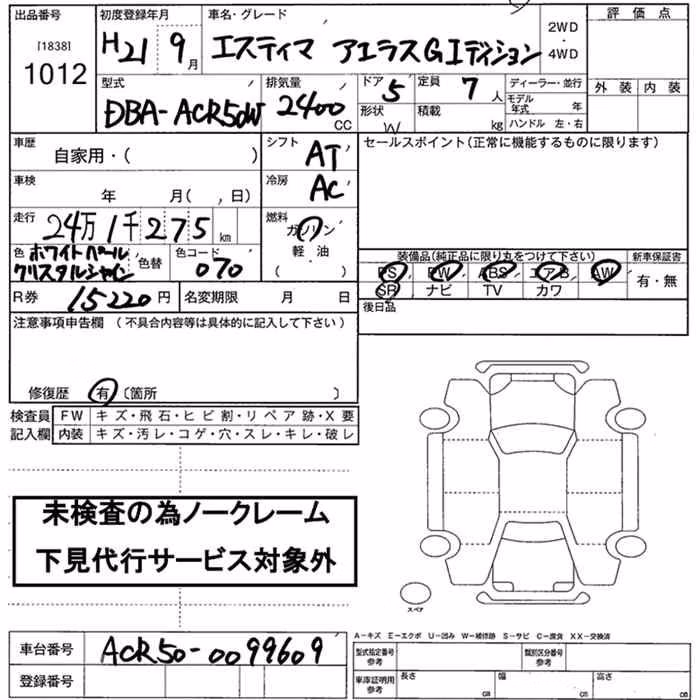 出品番号 初度登録年月 車名・グレード 評価点
[1838] 1012 H21 9月 エスティマ アエラスGエディション 2WD・4WD
外装 内装
型式 排気量 ドア 5 定員 7人 ディーラー・並行
DBA-ACR50W 2400 CC 形状 W 積載 kg モデル年式 年
ハンドル 左・右
車歴 自家用・( ) シフト AT セールスポイント(正常に機能するものに限ります)
車検 年 月( , 日) 冷房 AC
走行 24万1千275km 燃料 ガソリン・軽油・( )
色 ホワイトパールクリスタルシャイン 色替 色コード 070
装備品(純正品に限り丸をつけて下さい) 新車保証書
PS PW ABS エアB AW 有・無
SR ナビ TV カワ
R券 15220円 名変期限 月 日 後日品
注意事項申告欄 (不具合内容等は具体的に記入して下さい)
修復歴 有 〔箇所 〕
検査員 FW キズ・飛石・ヒビ割・リペア跡・X要
記入欄 内装 キズ・汚レ・コゲ・穴・スレ・キレ・破レ
未検査の為ノークレーム
下見代行サービス対象外
スペア
A-キズ E-エクボ U-凹み W-補修跡 S-サビ C-腐食 XX-交換済
車台番号 ACR50-0099609 型式指定番号 参考 類別区分番号 参考
登録番号 車庫証明用 参考 長さ cm 幅 cm 高さ cm